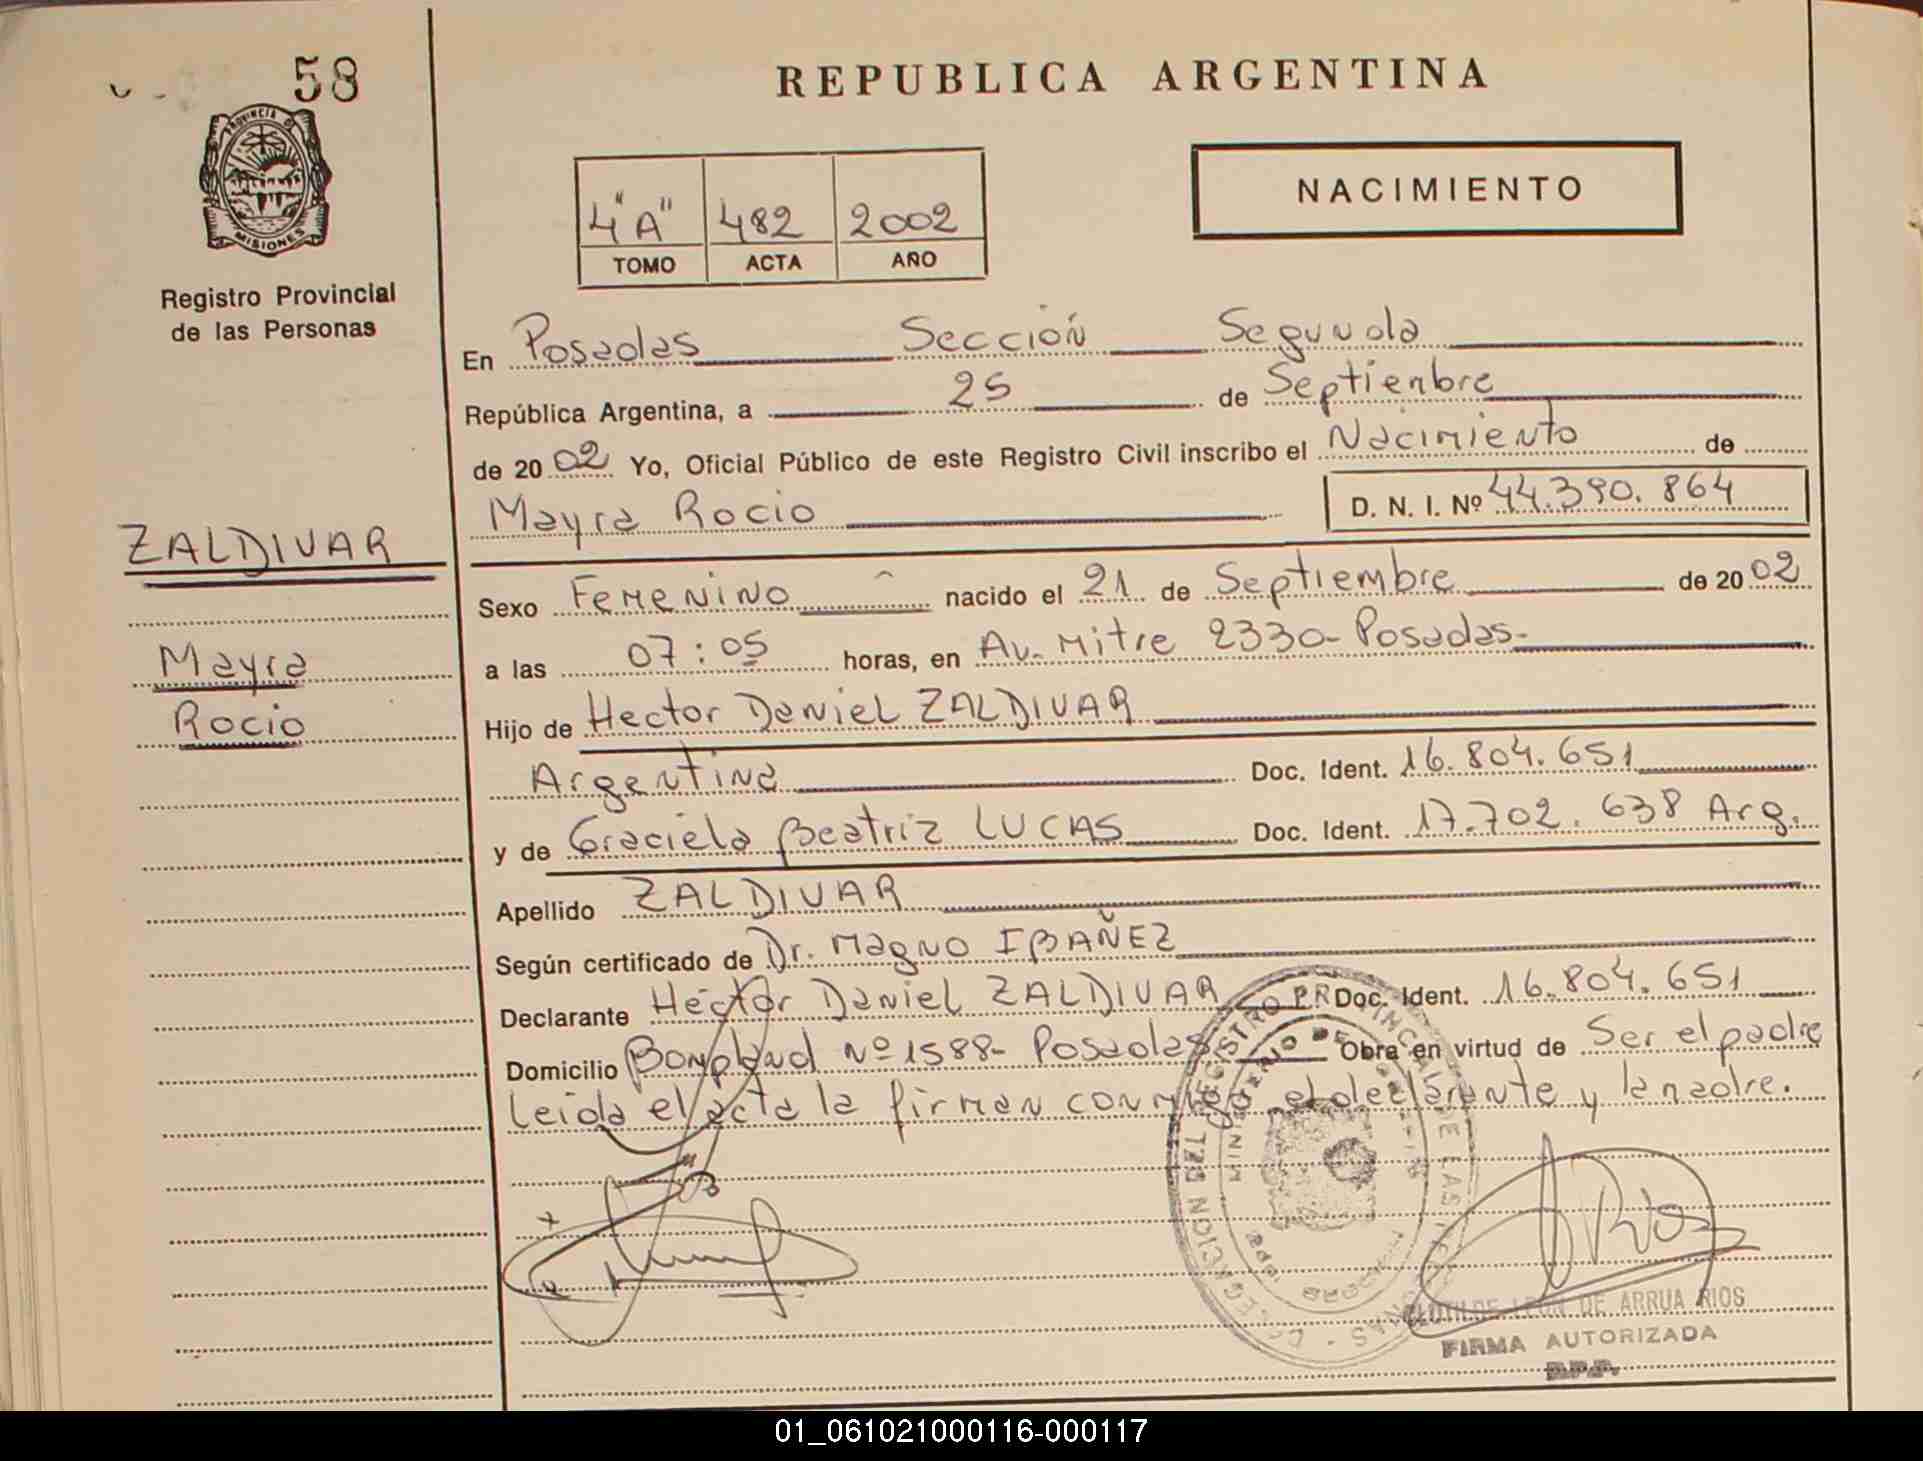 58
REPUBLICA ARGENTINA
PROVINCIA DE
MISIONES
Registro Provincial
de las Personas
4"A" 482 2002
TOMO ACTA AÑO
NACIMIENTO
En Posadas Sección Segunda
República Argentina, a 25 de Septienbre
de 2002 Yo, Oficial Público de este Registro Civil inscribo el Nacimiento de
Mayra Rocio D. N. I. Nº 44.390.864
ZALDIVAR
Mayra
Rocio
Sexo Femenino nacido el 21 de Septiembre de 2002
a las 07:05 horas, en Av. Mitre 2330- Posadas-
Hijo de Hector Daniel ZALDIVAR
Argentina Doc. Ident. 16.804.651
y de Graciela Beatriz LUCAS Doc. Ident. 17.702.638 Arg.
Apellido ZALDIVAR
Según certificado de Dr. Magno IBAÑEZ
Declarante Héctor Daniel ZALDIVAR Doc. Ident. 16.804.651
Domicilio Bompland Nº 1588- Posadas Obra en virtud de Ser el padre
Leida el acta la firman conmigo el declarante y la madre.
DEL REGISTRO PROVINCIAL DE LAS
CLOTILDE LEON DE ARRUA RIOS
FIRMA AUTORIZADA
R.P.P.
01_061021000116-000117